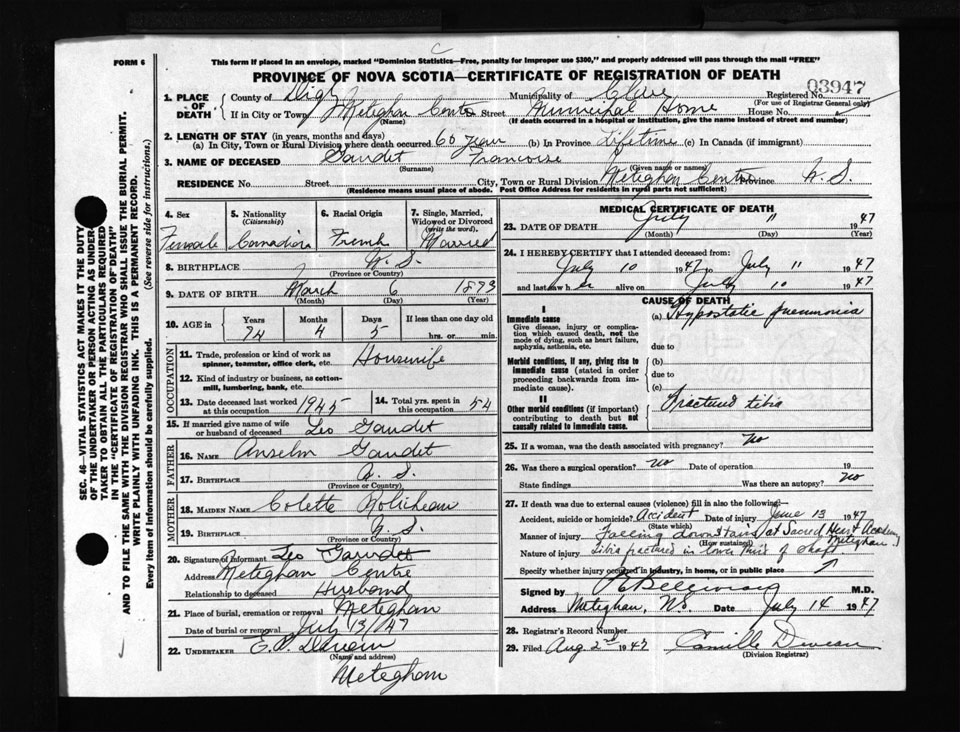 FORM 6
This form if placed in an envelope, marked "Dominion Statistics—Free, penalty for improper use $300," and properly addressed will pass through the mail "FREE"
PROVINCE OF NOVA SCOTIA—CERTIFICATE OF REGISTRATION OF DEATH
03947
1. PLACE OF DEATH County of Digby Municipality of Clare Registered No. (For use of Registrar General only)
If in City or Town Meteghan Centre (Name) Street Municipal Home House No.
(If death occurred in a hospital or institution, give the name instead of street and number)
2. LENGTH OF STAY (in years, months and days)
(a) In City, Town or Rural Division where death occurred 60 years (b) In Province Lifetime (c) In Canada (if immigrant)
3. NAME OF DECEASED Gaudet Francoise
(Surname) (Given name or names)
RESIDENCE No. Street City, Town or Rural Division Meteghan Centre Province N. S.
(Residence means usual place of abode. Post Office Address for residents in rural parts not sufficient)
4. Sex Female
5. Nationality (Citizenship) Canadian
6. Racial Origin French
7. Single, Married, Widowed or Divorced (write the word). Married
8. BIRTHPLACE N. S.
(Province or Country)
9. DATE OF BIRTH March 6 1873
(Month) (Day) (Year)
10. AGE in Years Months Days If less than one day old
74 4 5 hrs. or min.
OCCUPATION
11. Trade, profession or kind of work as spinner, teamster, office clerk, etc. Housewife
12. Kind of industry or business, as cotton-mill, lumbering, bank, etc.
13. Date deceased last worked at this occupation 1945
14. Total yrs. spent in this occupation 54
15. If married give name of wife or husband of deceased Leo Gaudet
FATHER
16. NAME Anselm Gaudet
17. BIRTHPLACE N. S.
(Province or Country)
MOTHER
18. MAIDEN NAME Colette Robicheau
19. BIRTHPLACE N. S.
(Province or Country)
20. Signature of informant Leo Gaudet
Address Meteghan Centre
Relationship to deceased Husband
21. Place of burial, cremation or removal Meteghan
Date of burial or removal July 13/47
22. UNDERTAKER E. P.
(Name and address)
Meteghan
MEDICAL CERTIFICATE OF DEATH
23. DATE OF DEATH July 11 1947
(Month) (Day) (Year)
24. I HEREBY CERTIFY that I attended deceased from:
July 10 1947 to July 11 1947
and last saw her alive on July 10 1947
CAUSE OF DEATH
I
Immediate cause (a) Hypostatic pneumonia
Give disease, injury or complication which caused death, not the mode of dying, such as heart failure, asphyxia, asthenia, etc.
due to
Morbid conditions, if any, giving rise to immediate cause (stated in order proceeding backwards from immediate cause). (b)
due to
(c)
II
Other morbid conditions (if important) contributing to death but not causally related to immediate cause. Fractured tibia
25. If a woman, was the death associated with pregnancy? no
26. Was there a surgical operation? no Date of operation 19
State findings Was there an autopsy? no
27. If death was due to external causes (violence) fill in also the following:—
Accident, suicide or homicide? Accident Date of injury June 13 1947
(State which)
Manner of injury Falling downstairs at Sacred Heart Academy Meteghan
(How sustained)
Nature of injury Tibia fractured in lower third of shaft
Specify whether injury occurred in industry, in home, or in public place
Signed by M.D.
Address Meteghan, N.S. Date July 14 1947
28. Registrar's Record Number
29. Filed Aug 2nd 1947 Camille
(Division Registrar)
SEC. 46—VITAL STATISTICS ACT MAKES IT THE DUTY OF THE UNDERTAKER OR PERSON ACTING AS UNDERTAKER TO OBTAIN ALL THE PARTICULARS REQUIRED IN THE "CERTIFICATE OF REGISTRATION OF DEATH" AND TO FILE THE SAME WITH THE DIVISION REGISTRAR WHO SHALL ISSUE THE BURIAL PERMIT.
WRITE PLAINLY WITH UNFADING INK. THIS IS A PERMANENT RECORD.
Every item of information should be carefully supplied. (See reverse side for instructions.)